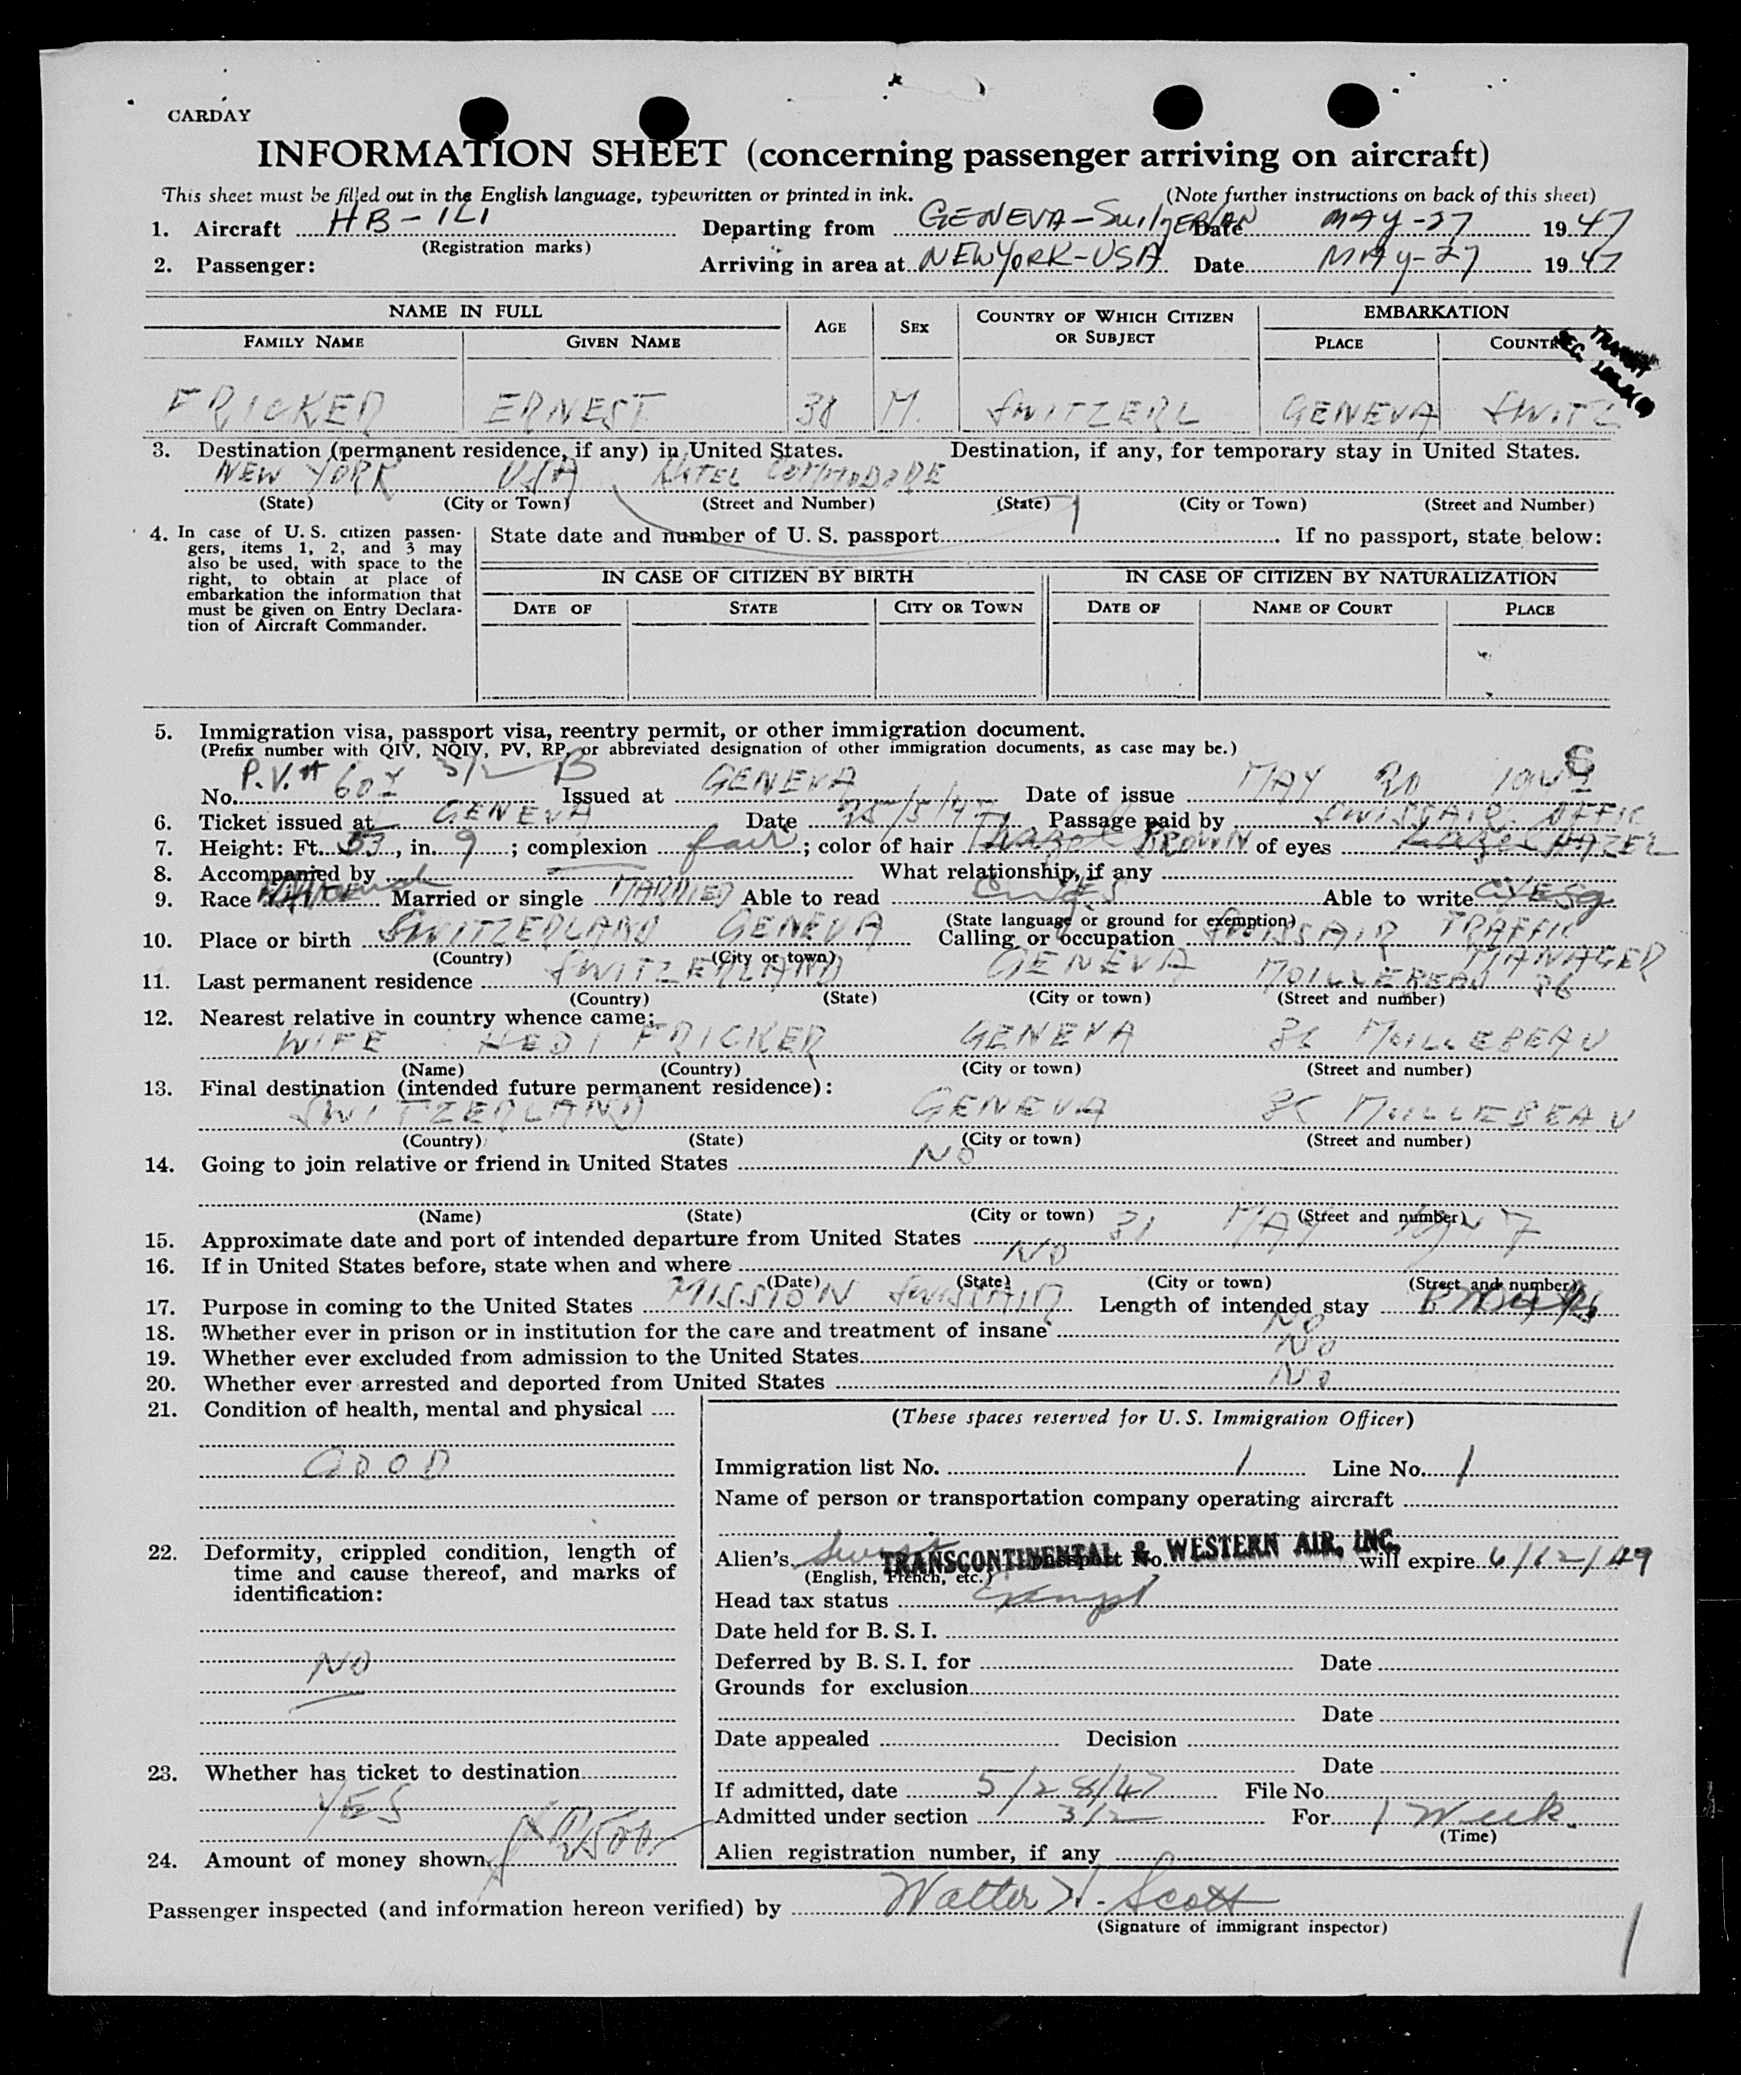 CARDAY
INFORMATION SHEET (concerning passenger arriving on aircraft)
This sheet must be filled out in the English language, typewritten or printed in ink. (Note further instructions on back of this sheet)
1. Aircraft HB-ILI Departing from GENEVA- Date MAY-27 1947
(Registration marks)
2. Passenger: Arriving in area at NEWYORK-USA Date MAY-27 1947
NAME IN FULL AGE SEX COUNTRY OF WHICH CITIZEN OR SUBJECT EMBARKATION
FAMILY NAME GIVEN NAME PLACE COUNTRY
TRANSIT
SEC.
FRICKER ERNEST 38 M. SWITZERL GENEVA SWITZ
3. Destination (permanent residence, if any) in United States. Destination, if any, for temporary stay in United States.
NEW YORK USA HOTEL COMMODORE
(State) (City or Town) (Street and Number) (State) (City or Town) (Street and Number)
4. In case of U. S. citizen passengers, items 1, 2, and 3 may also be used, with space to the right, to obtain at place of embarkation the information that must be given on Entry Declaration of Aircraft Commander.
State date and number of U. S. passport If no passport, state below:
IN CASE OF CITIZEN BY BIRTH IN CASE OF CITIZEN BY NATURALIZATION
DATE OF STATE CITY OR TOWN DATE OF NAME OF COURT PLACE
5. Immigration visa, passport visa, reentry permit, or other immigration document.
(Prefix number with QIV, NQIV, PV, RP, or abbreviated designation of other immigration documents, as case may be.)
No. P.V.# 607 3/2 B Issued at GENEVA Date of issue MAY 20
6. Ticket issued at GENEVA Date 25/5/47 Passage paid by SWISSAIR OFFIC
7. Height: Ft. , in. 9 ; complexion fair ; color of hair BROWN of eyes HAZEL
8. Accompanied by What relationship, if any
9. Race Married or single MARRIED Able to read YES Able to write YES
(State language or ground for exemption)
10. Place or birth SWITZERLAND GENEVA Calling or occupation SWISSAIR TRAFFIC MANAGER
(Country) (City or town)
11. Last permanent residence SWITZERLAND GENEVA MOILLEBEAU 86
(Country) (State) (City or town) (Street and number)
12. Nearest relative in country whence came:
WIFE HEDI FRICKER GENEVA 86 MOILLEBEAU
(Name) (Country) (City or town) (Street and number)
13. Final destination (intended future permanent residence):
SWITZERLAND GENEVA 86 MOILLEBEAU
(Country) (State) (City or town) (Street and number)
14. Going to join relative or friend in United States NO
(Name) (State) (City or town) (Street and number)
15. Approximate date and port of intended departure from United States 31 MAY 1947
16. If in United States before, state when and where NO
(Date) (State) (City or town) (Street and number)
17. Purpose in coming to the United States MISSION SWISSAIR Length of intended stay
18. Whether ever in prison or in institution for the care and treatment of insane NO
19. Whether ever excluded from admission to the United States NO
20. Whether ever arrested and deported from United States NO
21. Condition of health, mental and physical
GOOD
22. Deformity, crippled condition, length of time and cause thereof, and marks of identification:
NO
23. Whether has ticket to destination
YES
24. Amount of money shown
(These spaces reserved for U. S. Immigration Officer)
Immigration list No. 1 Line No. 1
Name of person or transportation company operating aircraft
TRANSCONTINENTAL & WESTERN AIR, INC.
Alien's Swiss passport No. will expire 6/12/49
(English, French, etc.)
Head tax status exempt
Date held for B. S. I.
Deferred by B. S. I. for Date
Grounds for exclusion
Date
Date appealed Decision
Date
If admitted, date 5/28/47 File No.
Admitted under section 3/2 For 1 Week.
(Time)
Alien registration number, if any
Passenger inspected (and information hereon verified) by Walter H. Scott
(Signature of immigrant inspector)
1